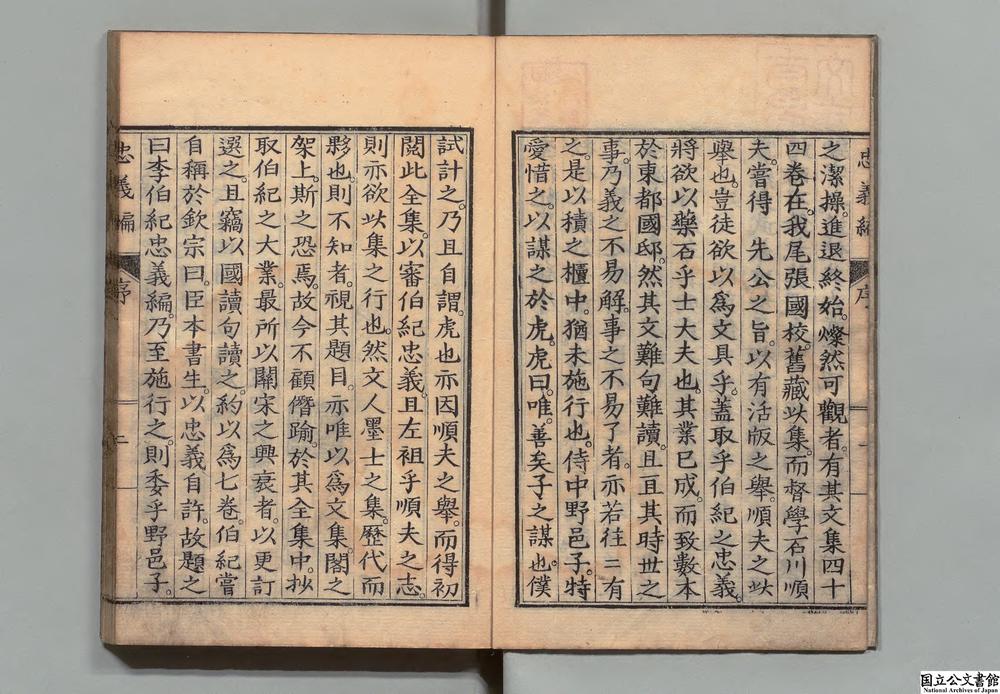 之潔操。進退終始。燦然可觀者。有其文集四十
四卷在。我尾張國校。舊藏此集。而督學石川順
夫。嘗得　先公之旨。以有活版之舉。順夫之此
舉也。豈徒欲以爲文具乎。蓋取乎伯紀之忠義。
將欲以藥石乎士大夫也。其業已成。而致數本
於東都國邸。然其文難句難讀。且且其時世之
事。乃義之不易解。事之不易了者。亦若往二有
之。是以積之櫃中。猶未施行也。侍中野邑子。特
愛惜之。以謀之於虎。虎曰。唯。善矣子之謀也。僕
忠義編
序
試計之。乃且自謂。虎也亦因順夫之舉。而得初
閱此全集。以審伯紀忠義。且左袒乎順夫之志。
則亦欲此集之行也。然文人墨士之集。歷代而
夥也。則不知者。視其題目。亦唯以爲文集。閣之
架上。斯之恐焉。故今不顧僭踰。於其全集中。抄
取伯紀之大業。最所以關宋之興衰者。以更訂
選之。且竊以國讀句讀之。約以爲七卷。伯紀嘗
自稱於欽宗曰。臣本書生。以忠義自許。故題之
曰李伯紀忠義編。乃至施行之。則委乎野邑子。
忠義編
序
二
国立公文書館
National Archives of Japan